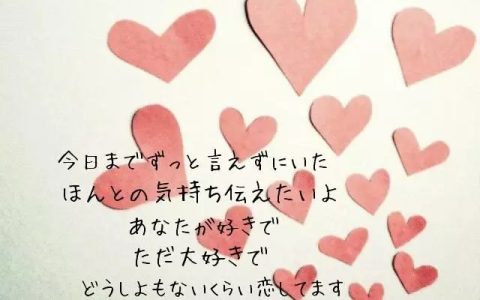 今日までずっと言えずにいた
ほんとの気持ち伝えたいよ
あなたが好きで
ただ大好きで
どうしよもないくらい恋してます